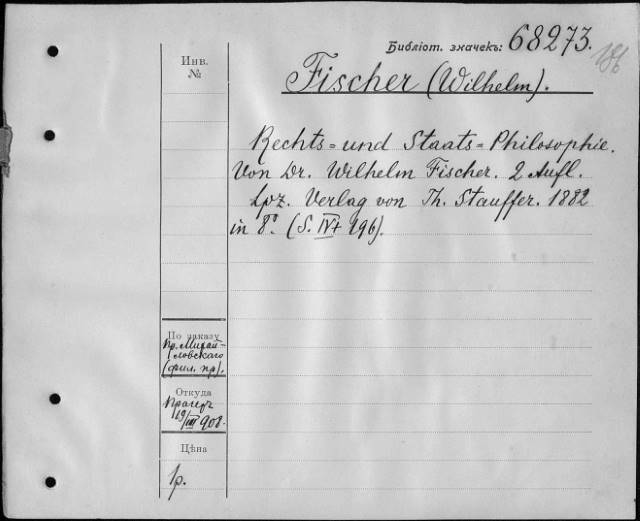 Библіот. значекъ: 68273.
186
Инв.
№
Fischer (Wilhelm).
Rechts=und Staats=Philosophie.
Von Dr. Wilhelm Fischer. 2 Aufl.
Lpz. Verlag von Th. Stauffer. 1882
in 8º. (S. IV+196).
По заказу
Пр. Михай-
ловскаго
(фил. пр).
Откуда
Прагеръ
19/III 908.
Цѣна
1р.